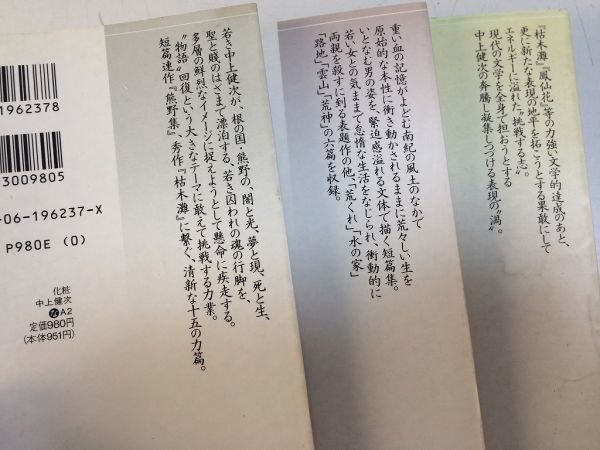 『枯木灘』『鳳仙花』等の力強い文学的達成のあと、
更に新たな表現の地平を拓こうとする果敢にして
エネルギーに溢れた“挑戦する志”。
現代の文学を全身で担おうとする
中上健次の奔騰し凝集しつづける表現の“渦”。
重い血の記憶がよどむ南紀の風土のなかで
原始的な本性に衝き動かされるままに荒々しい生を
いとなむ男の姿を、緊迫感溢れる文体で描く短篇集。
若い女との気ままで怠惰な生活をなじられ、衝動的に
両親を殺すに到る表題作の他、「荒くれ」「水の家」
「路地」「雲山」「荒神」の六篇を収録。
若き中上健次が、根の国・熊野の、闇と光、夢と現、死と生、
聖と賤のはざまで漂泊する、若き囚われの魂の行脚を、
多層の鮮烈なイメージに捉えようとして懸命に疾走する。
“物語”回復という大きなテーマに敢えて挑戦する力業。
短篇連作『熊野集』、秀作『枯木灘』に繋ぐ、清新な十五の力篇。
1962378
3009805
-06-196237-X
P980E (0)
化粧
中上健次
な A2
定価980円
(本体951円)